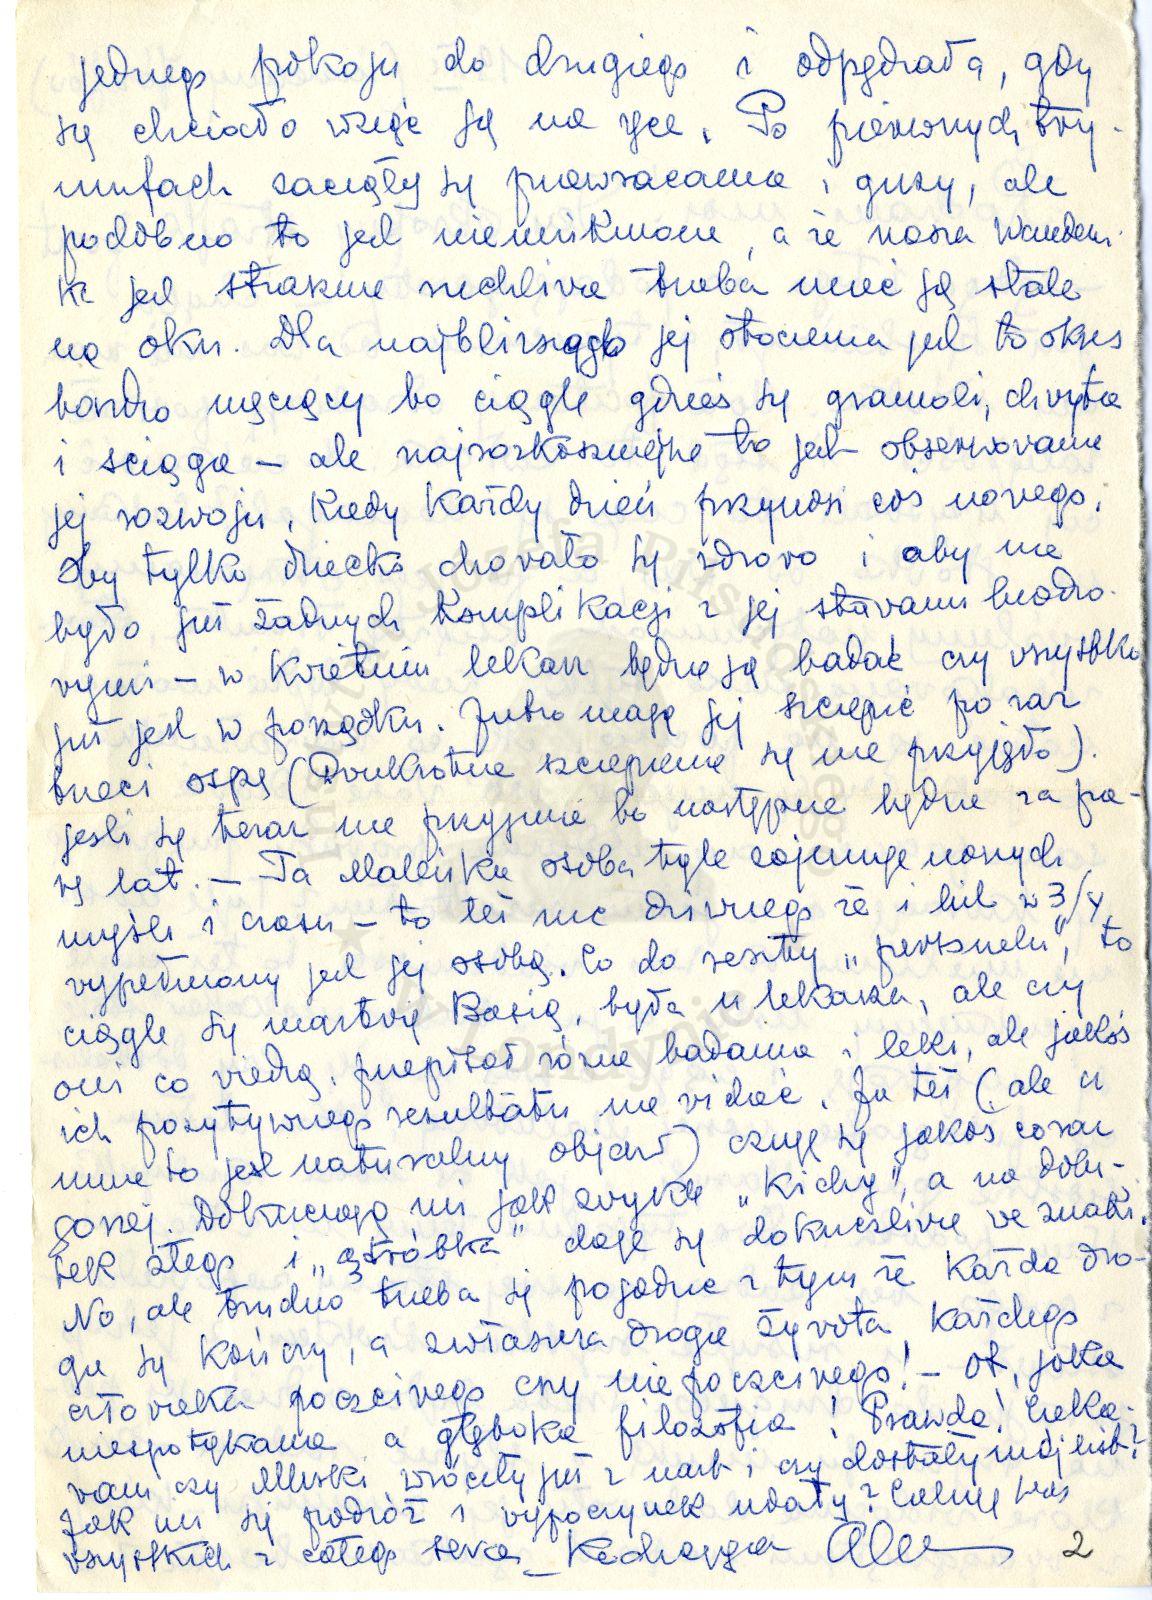 jednego pokoju do drugiego i odpędzała, gdy
się chciało wziąć ją na ręce. Po pierwszych try-
umfach zaczęły się przewracania i guzy, ale
podobno to jest nieuniknione, a że nasza Wandecz-
ka jest strasznie ruchliwa trzeba mieć ją stale
na oku. Dla najbliższego jej otoczenia jest to okres
bardzo męczący bo ciągle gdzieś się gramoli, chwyta
i ściąga – ale najrozkoszniejsze to jest obserwowanie
jej rozwoju, kiedy każdy dzień przynosi coś nowego.
Żeby tylko dziecko chowało się zdrowo i aby nie
było już żadnych komplikacji z jej stawami biodro-
wymi – w kwietniu lekarz będzie ją badać czy wszystko
już jest w porządku. Jutro mają jej szczepić po raz
trzeci ospę (Dwukrotne szczepienie się nie przyjęło).
jeśli się teraz nie przyjmie to następne będzie za pa-
rę lat. – Ta Maleńka osoba tyle zajmuje naszych
myśli i czasu – to też nic dziwnego że i list w 3/4
wypełniony jest jej osobą. Co do reszty „personelu", to
ciągle się martwię Basią, była u lekarza, ale czy
oni co wiedzą, przepisał różne badania i leki, ale jakoś
ich pozytywnego rezultatu nie widać. Ja też (ale u
mnie to jest naturalny objaw) czuję się jakoś coraz
gorzej. Dokuczają mi jak zwykle „Kichy", a na doda-
tek złego i „wątróbka" daje się dokuczliwie we znaki.
No, ale trudno trzeba się pogodzić z tym że każda dro-
ga się kończy, a zwłaszcza droga żywota każdego
człowieka poczciwego czy niepoczciwego! – Ot, jaka
niespotykana a głęboka filozofia! Prawda! Cieka-
wam czy Muski wróciły już z nart i czy dostały mój list?
Jak im się podróż i wypoczynek udały? Całuję Was
wszystkich z całego serca – Kochająca
2